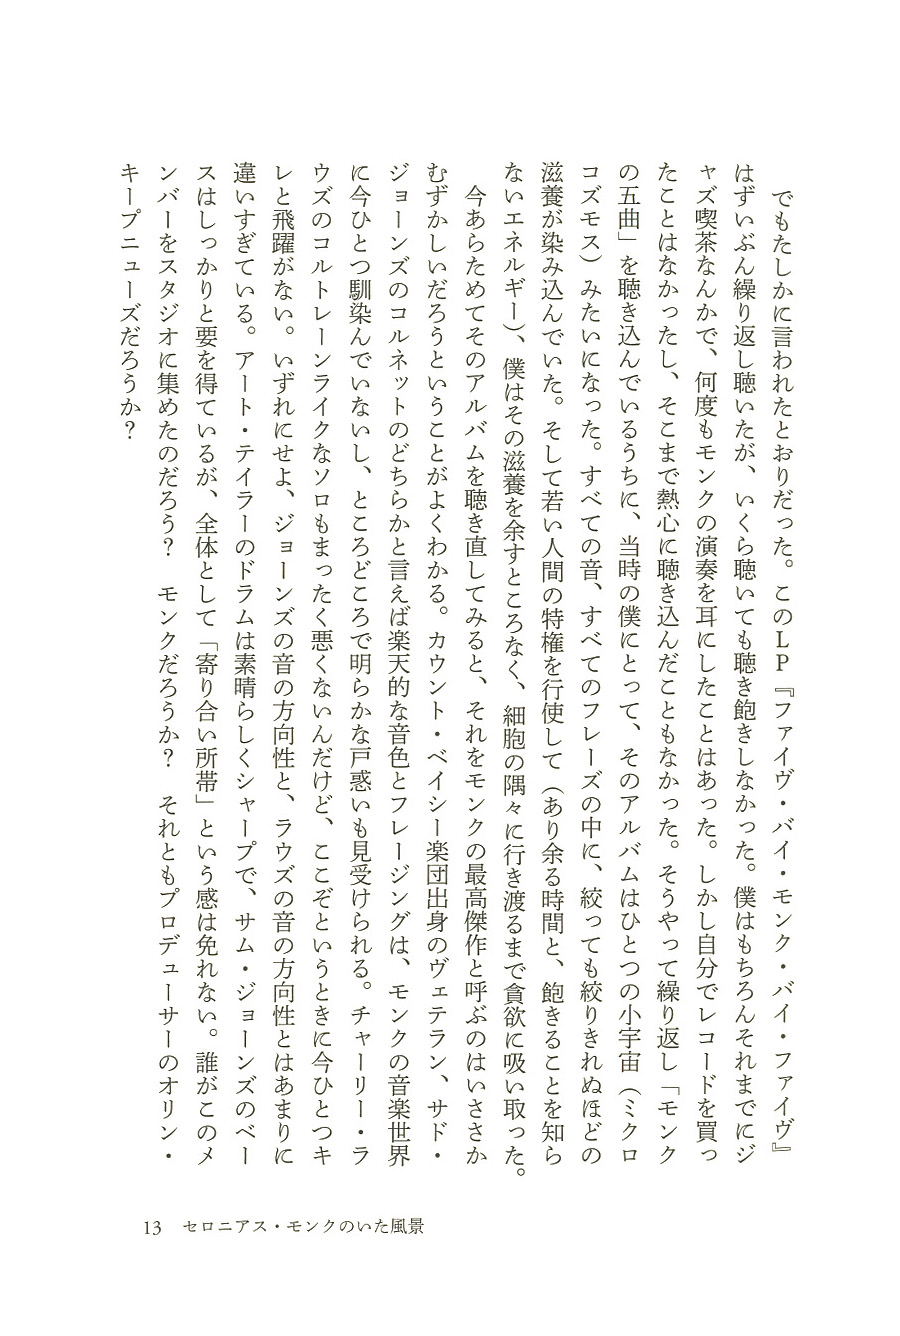 でもたしかに言われたとおりだった。このＬＰ『ファイヴ・バイ・モンク・バイ・ファイヴ』
はずいぶん繰り返し聴いたが、いくら聴いても聴き飽きしなかった。僕はもちろんそれまでにジ
ャズ喫茶なんかで、何度もモンクの演奏を耳にしたことはあった。しかし自分でレコードを買っ
たことはなかったし、そこまで熱心に聴き込んだこともなかった。そうやって繰り返し「モンク
の五曲」を聴き込んでいるうちに、当時の僕にとって、そのアルバムはひとつの小宇宙（ミクロ
コズモス）みたいになった。すべての音、すべてのフレーズの中に、絞っても絞りきれぬほどの
滋養が染み込んでいた。そして若い人間の特権を行使して（あり余る時間と、飽きることを知ら
ないエネルギー）、僕はその滋養を余すところなく、細胞の隅々に行き渡るまで貪欲に吸い取った。
今あらためてそのアルバムを聴き直してみると、それをモンクの最高傑作と呼ぶのはいささか
むずかしいだろうということがよくわかる。カウント・ベイシー楽団出身のヴェテラン、サド・
ジョーンズのコルネットのどちらかと言えば楽天的な音色とフレージングは、モンクの音楽世界
に今ひとつ馴染んでいないし、ところどころで明らかな戸惑いも見受けられる。チャーリー・ラ
ウズのコルトレーンライクなソロもまったく悪くないんだけど、ここぞというときに今ひとつキ
レと飛躍がない。いずれにせよ、ジョーンズの音の方向性と、ラウズの音の方向性とはあまりに
違いすぎている。アート・テイラーのドラムは素晴らしくシャープで、サム・ジョーンズのベー
スはしっかりと要を得ているが、全体として「寄り合い所帯」という感は免れない。誰がこのメ
ンバーをスタジオに集めたのだろう？　モンクだろうか？　それともプロデューサーのオリン・
キープニューズだろうか？
13　セロニアス・モンクのいた風景